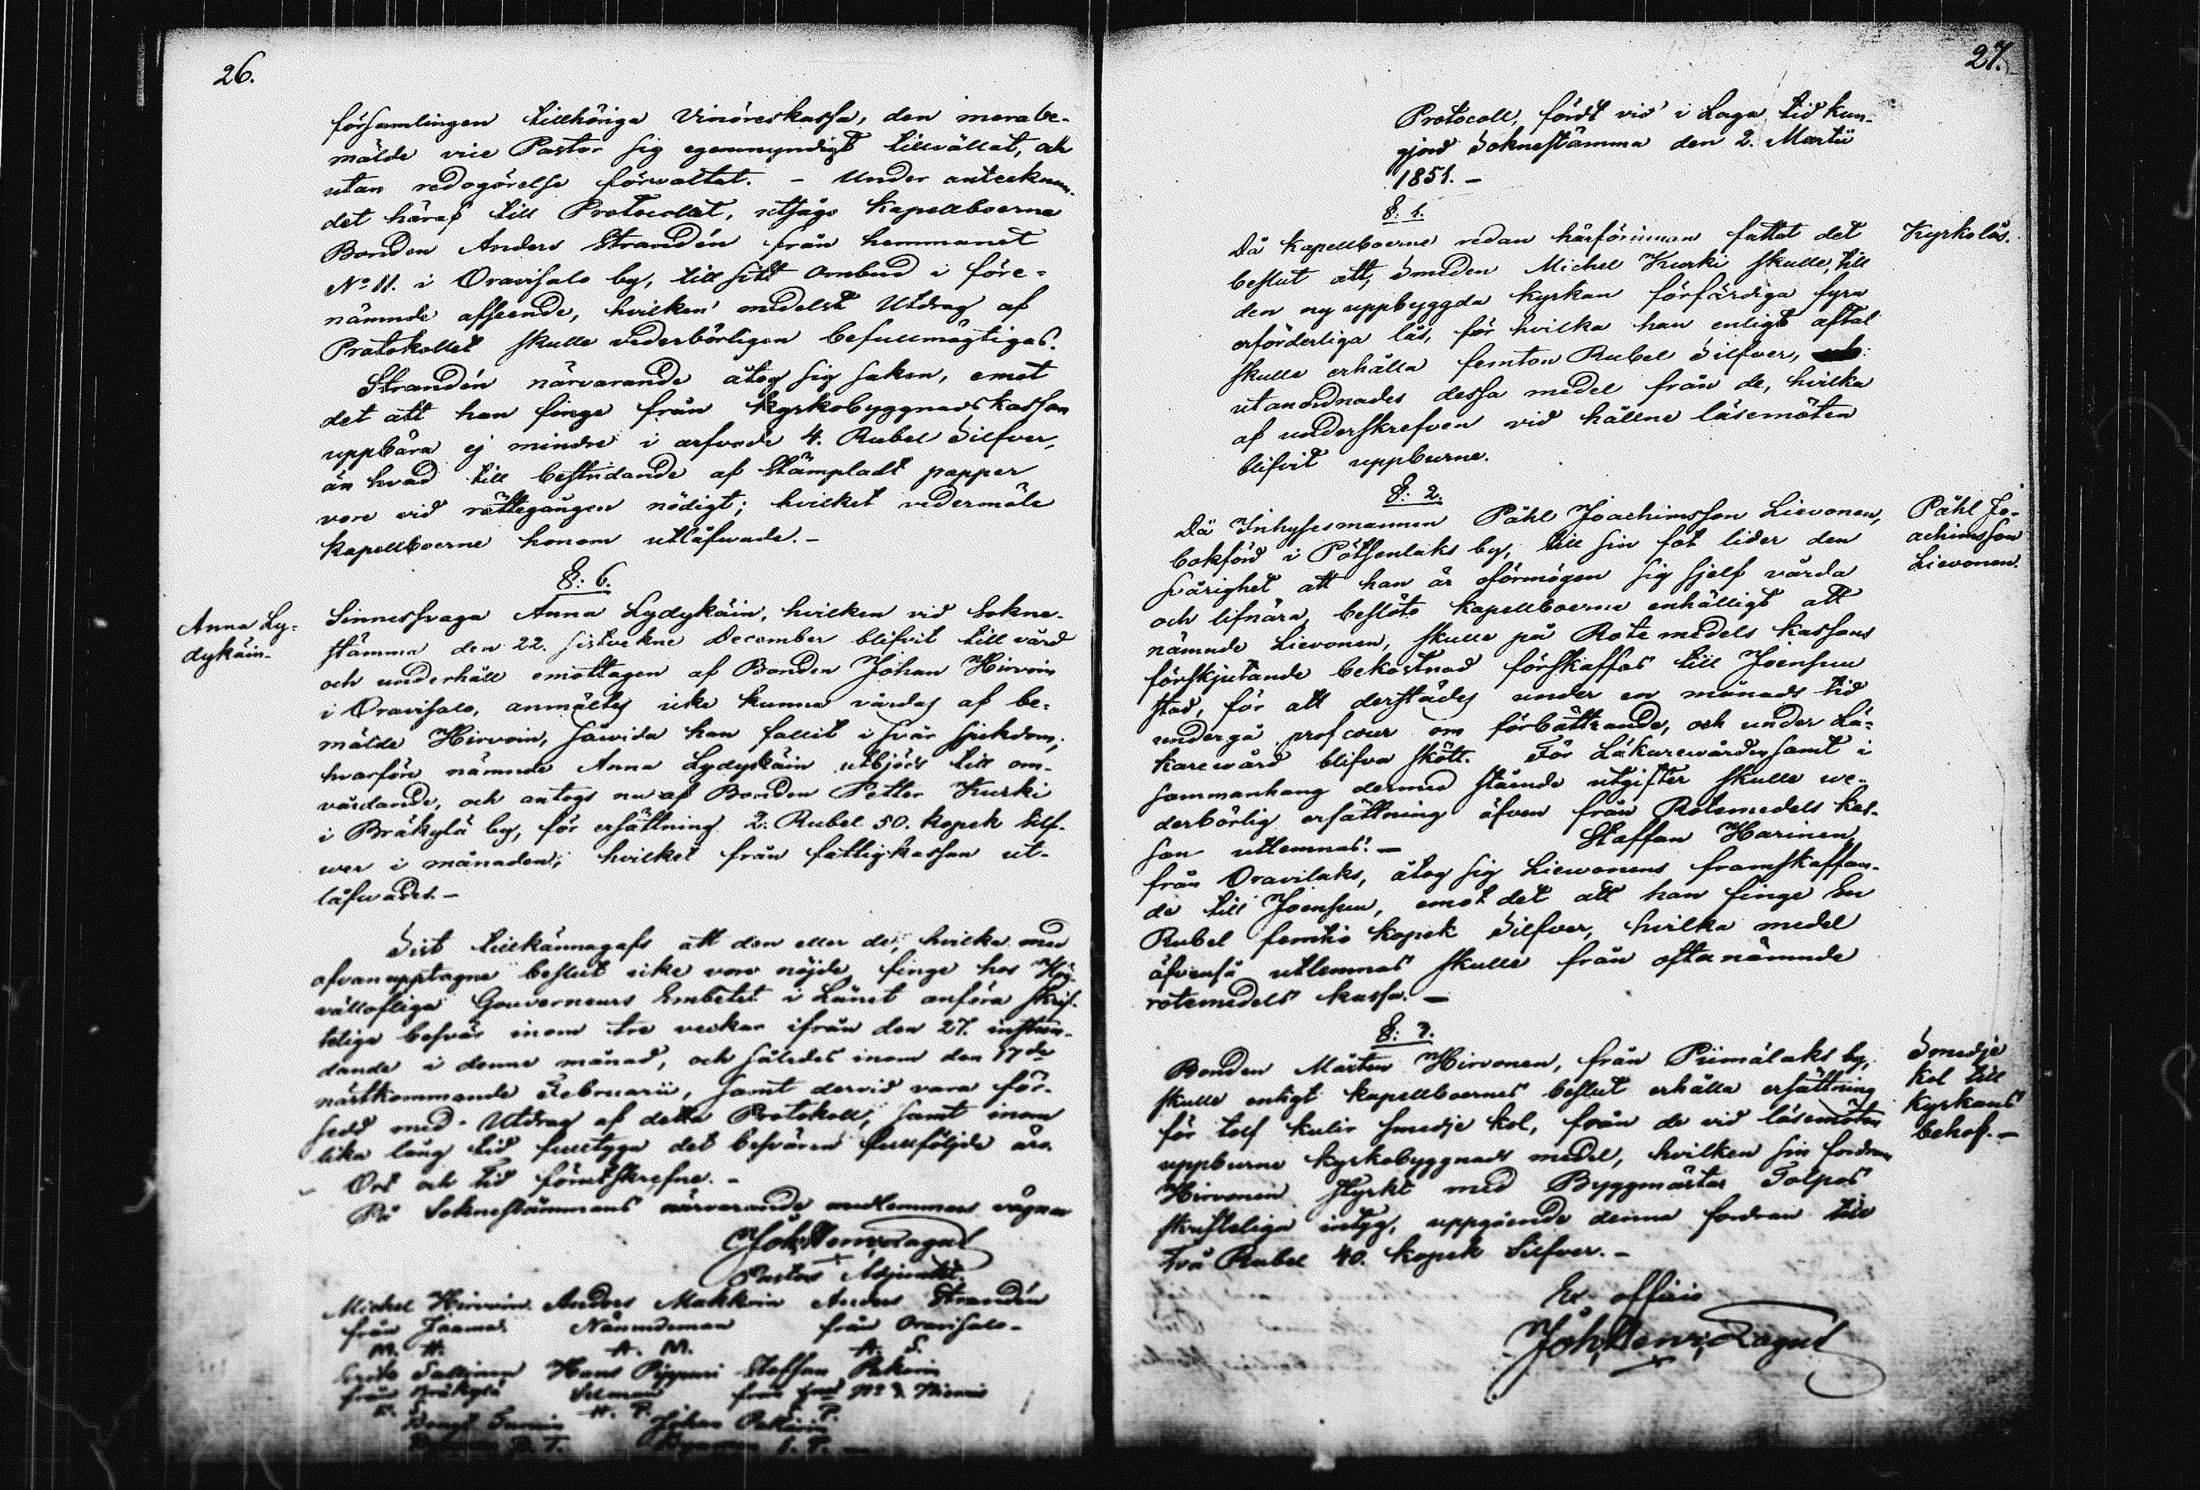 26.
församlingen tillhöriga Vinöreskassa, den merabe-
mälde vice Pastor sig egenmyndigt tillvällat, och
utan redogörelse förvaltat. – Under antecknan-
det häraf till Protocollet, utsågo Kapellboerne
Bonden Anders Strandén från hemmanet
No 11. i Oravisalo by, till sitt ombud i före-
nämnde afseende, hvilken medelst Utdrag af
Protokollet skulle vederbörligen befullmägtigas.
Strandén närvarande åtog sig saken, emot
det att han finge från Kyrkobyggnads kassan
uppbära ej mindre i arfvode 4. Rubel Silfver,
än hvad till bestridande af Stämpladt papper
vore vid rättegången nödigt; hvilket vedermäle
Kapellboerne honom utläfvade. –
§: 6.
Anna Ly-
dykäin
Sinnessvaga Anna Lydykäin, hvilken vid Sokne-
stämma den 22. sistvekne December blifvit till vård
och underhåll emottagen af Bonden Johan Hirvoin
i Oravisalo, anmältes icke kunna vårdas af be-
mälde Hirvoin, såvida han fallit i svår sjukdom;
hvarföre nämnde Anna Lydykäin utbjöds till om-
vårdande, och antogs nu af Bonden Petter Kurki
i Bräkylä by, för ersättning 2. Rubel 50. kopek silf-
wer i månaden; hvilket från fattigkassan ut-
läfvades. –
Sist tillkännagafs att den eller de, hvilka med
ofvanupptagne beslut icke vore nöjde, finge hos
vällofliga Gouverneurs Embetet i Länet anföra skrif-
teliga besvär inom tre veckor ifrån den 27. instun-
dande i denne månad, och således inom den 17de
nästkommande Februarii, samt dervid vara för-
sedd med Utdrag af detta Protokoll, samt inom
lika lång tid fulltyga det besvären fullföljde äro.
Ort och tid förutskrefne. –
På Soknestämmans närvarande medlemmars vägnar
Joh. Henr. Zagus
Pastors Adjunct
Michel Hirvoin Anders Makkoin Anders Strandén
från Jaama Nämndeman från Oravisalo –
M. H. A. M. A. S.
Sallinen Hans Staffan Pakarin
från Bräkylä från No
H. P. P.
Bengt Johan
B. T.
27.
Protocoll, fördt vid i Laga tid kun-
gjord Soknestämma den 2. Martii
1851. –
§: 1.
Kyrkolås.
Då Kapellboerne redan härförinnan fattat det
beslut att, Smeden Michel Kurki skulle, till
den ny uppbyggda kyrkan förfärdiga fyra
erförderliga lås, för hvilka han enligt aftal
skulle erhålla femton Rubel Silfver,
utanordnades dessa medel från de, hvilka
af underskrefven vid hållne läsemöten
blifvit uppburne.
§: 2.
Påhl Jo-
achimsson
Lievonen.
Då Inhysesmannen Påhl Joachimsson Lievonen,
bokförd i Pötsenlaks by, till sin fot lider den
svårighet att han är oförmögen sig sjelf vårda
och lifnära, beslöto kapellboerne enhälligt att
nämnde Lievonen, skulle på Rote medels kassans
förskjutande bekostnad förskaffas till Joensuu
stad, för att derstädes under en månads tid
undergå profcour om förbättrande, och under Lä-
karevård blifva skött. För Läkarevården samt i
sammanhang dermed stående utgifter skulle we-
derbörlig ersättning äfven från Rotemedels kas-
san utlemnas. – Staffan Harinen
från Oravilaks, åtog sig Lievonens framskaffan-
de till Joensuu, emot det att han finge En
Rubel femtio kopek Silfver, hvilka medel
äfvenså utlemnas skulle från oftanämnde
rotemedels kassa. –
§: 3.
Smedje
kol till
Kyrkans
behof. –
Bonden Mårten Hirvonen, från Piimälaks by,
skulle enligt kapellboernes beslut erhålla ersättning
för tolf kulir smedje kol, från de vid läsemöten
uppburne kyrkobyggnads medel, hvilken sin fordran
Hirvonen styrkt med Byggmästar Tolpos
skrifteliga intyg, uppgående denna fordran till
två Rubel 40. kopek Silfver. –
Ex officio
Joh. Henr. Zagus